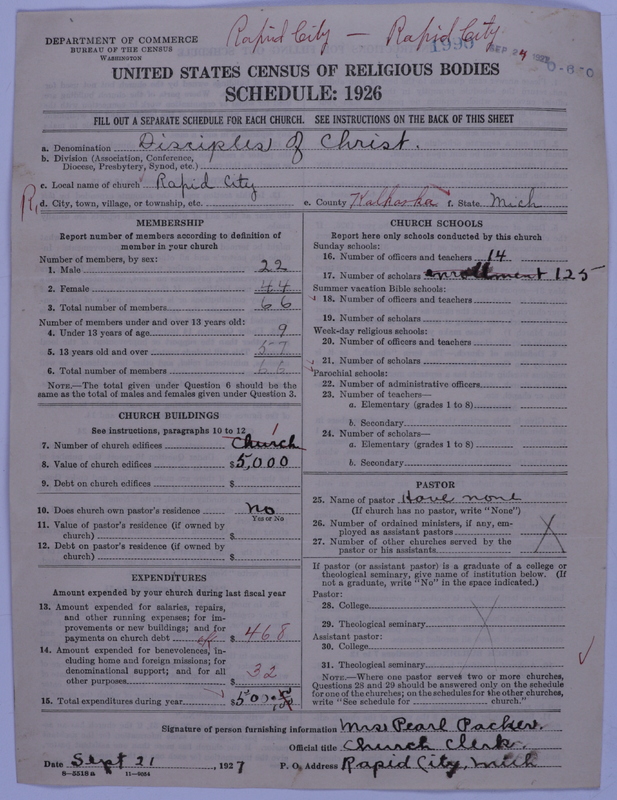 Rapid City — Rapid City
DEPARTMENT OF COMMERCE
BUREAU OF THE CENSUS
WASHINGTON
SEP 24 1927
UNITED STATES CENSUS OF RELIGIOUS BODIES
SCHEDULE: 1926
FILL OUT A SEPARATE SCHEDULE FOR EACH CHURCH. SEE INSTRUCTIONS ON THE BACK OF THIS SHEET
a. Denomination Disciples of Christ.
b. Division (Association, Conference,
Diocese, Presbytery, Synod, etc.)
c. Local name of church Rapid City
R, d. City, town, village, or township, etc. e. County Kalkaska f. State Mich
MEMBERSHIP
Report number of members according to definition of
member in your church
Number of members, by sex:
1. Male 22
2. Female 44
3. Total number of members 66
Number of members under and over 13 years old:
4. Under 13 years of age 9
5. 13 years old and over 57
6. Total number of members 66
NOTE.—The total given under Question 6 should be the
same as the total of males and females given under Question 3.
CHURCH BUILDINGS
See instructions, paragraphs 10 to 12
7. Number of church edifices Church 1
8. Value of church edifices $5,000
9. Debt on church edifices $
10. Does church own pastor's residence? No
Yes or No
11. Value of pastor's residence (if owned by
church) $
12. Debt on pastor's residence (if owned by
church) $
EXPENDITURES
Amount expended by your church during last fiscal year
13. Amount expended for salaries, repairs,
and other running expenses; for im-
provements or new buildings; and for
payments on church debt $ 468
14. Amount expended for benevolences, in-
cluding home and foreign missions; for
denominational support; and for all
other purposes $ 32
15. Total expenditures during year $
CHURCH SCHOOLS
Report here only schools conducted by this church
Sunday schools:
16. Number of officers and teachers 14
17. Number of scholars enrollment 125
Summer vacation Bible schools:
18. Number of officers and teachers
19. Number of scholars
Week-day religious schools:
20. Number of officers and teachers
21. Number of scholars
Parochial schools:
22. Number of administrative officers
23. Number of teachers—
a. Elementary (grades 1 to 8)
b. Secondary
24. Number of scholars—
a. Elementary (grades 1 to 8)
b. Secondary
PASTOR
25. Name of pastor Have none
(If church has no pastor, write "None")
26. Number of ordained ministers, if any, em-
ployed as assistant pastors
27. Number of other churches served by the
pastor or his assistants
If pastor (or assistant pastor) is a graduate of a college or
theological seminary, give name of institution below. (If
not a graduate, write "No" in the space indicated.)
Pastor:
28. College
29. Theological seminary
Assistant pastor:
30. College
31. Theological seminary
NOTE.—Where one pastor served two or more churches,
Questions 28 and 29 should be answered only on the schedule
for one of the churches; on the schedules for the other churches,
write "See schedule for church."
Signature of person furnishing information Mrs Pearl Packer.
Official title Church Clerk.
Date Sept 21, 1927 P. O. Address Rapid City, Mich
8—5518a 11—9054